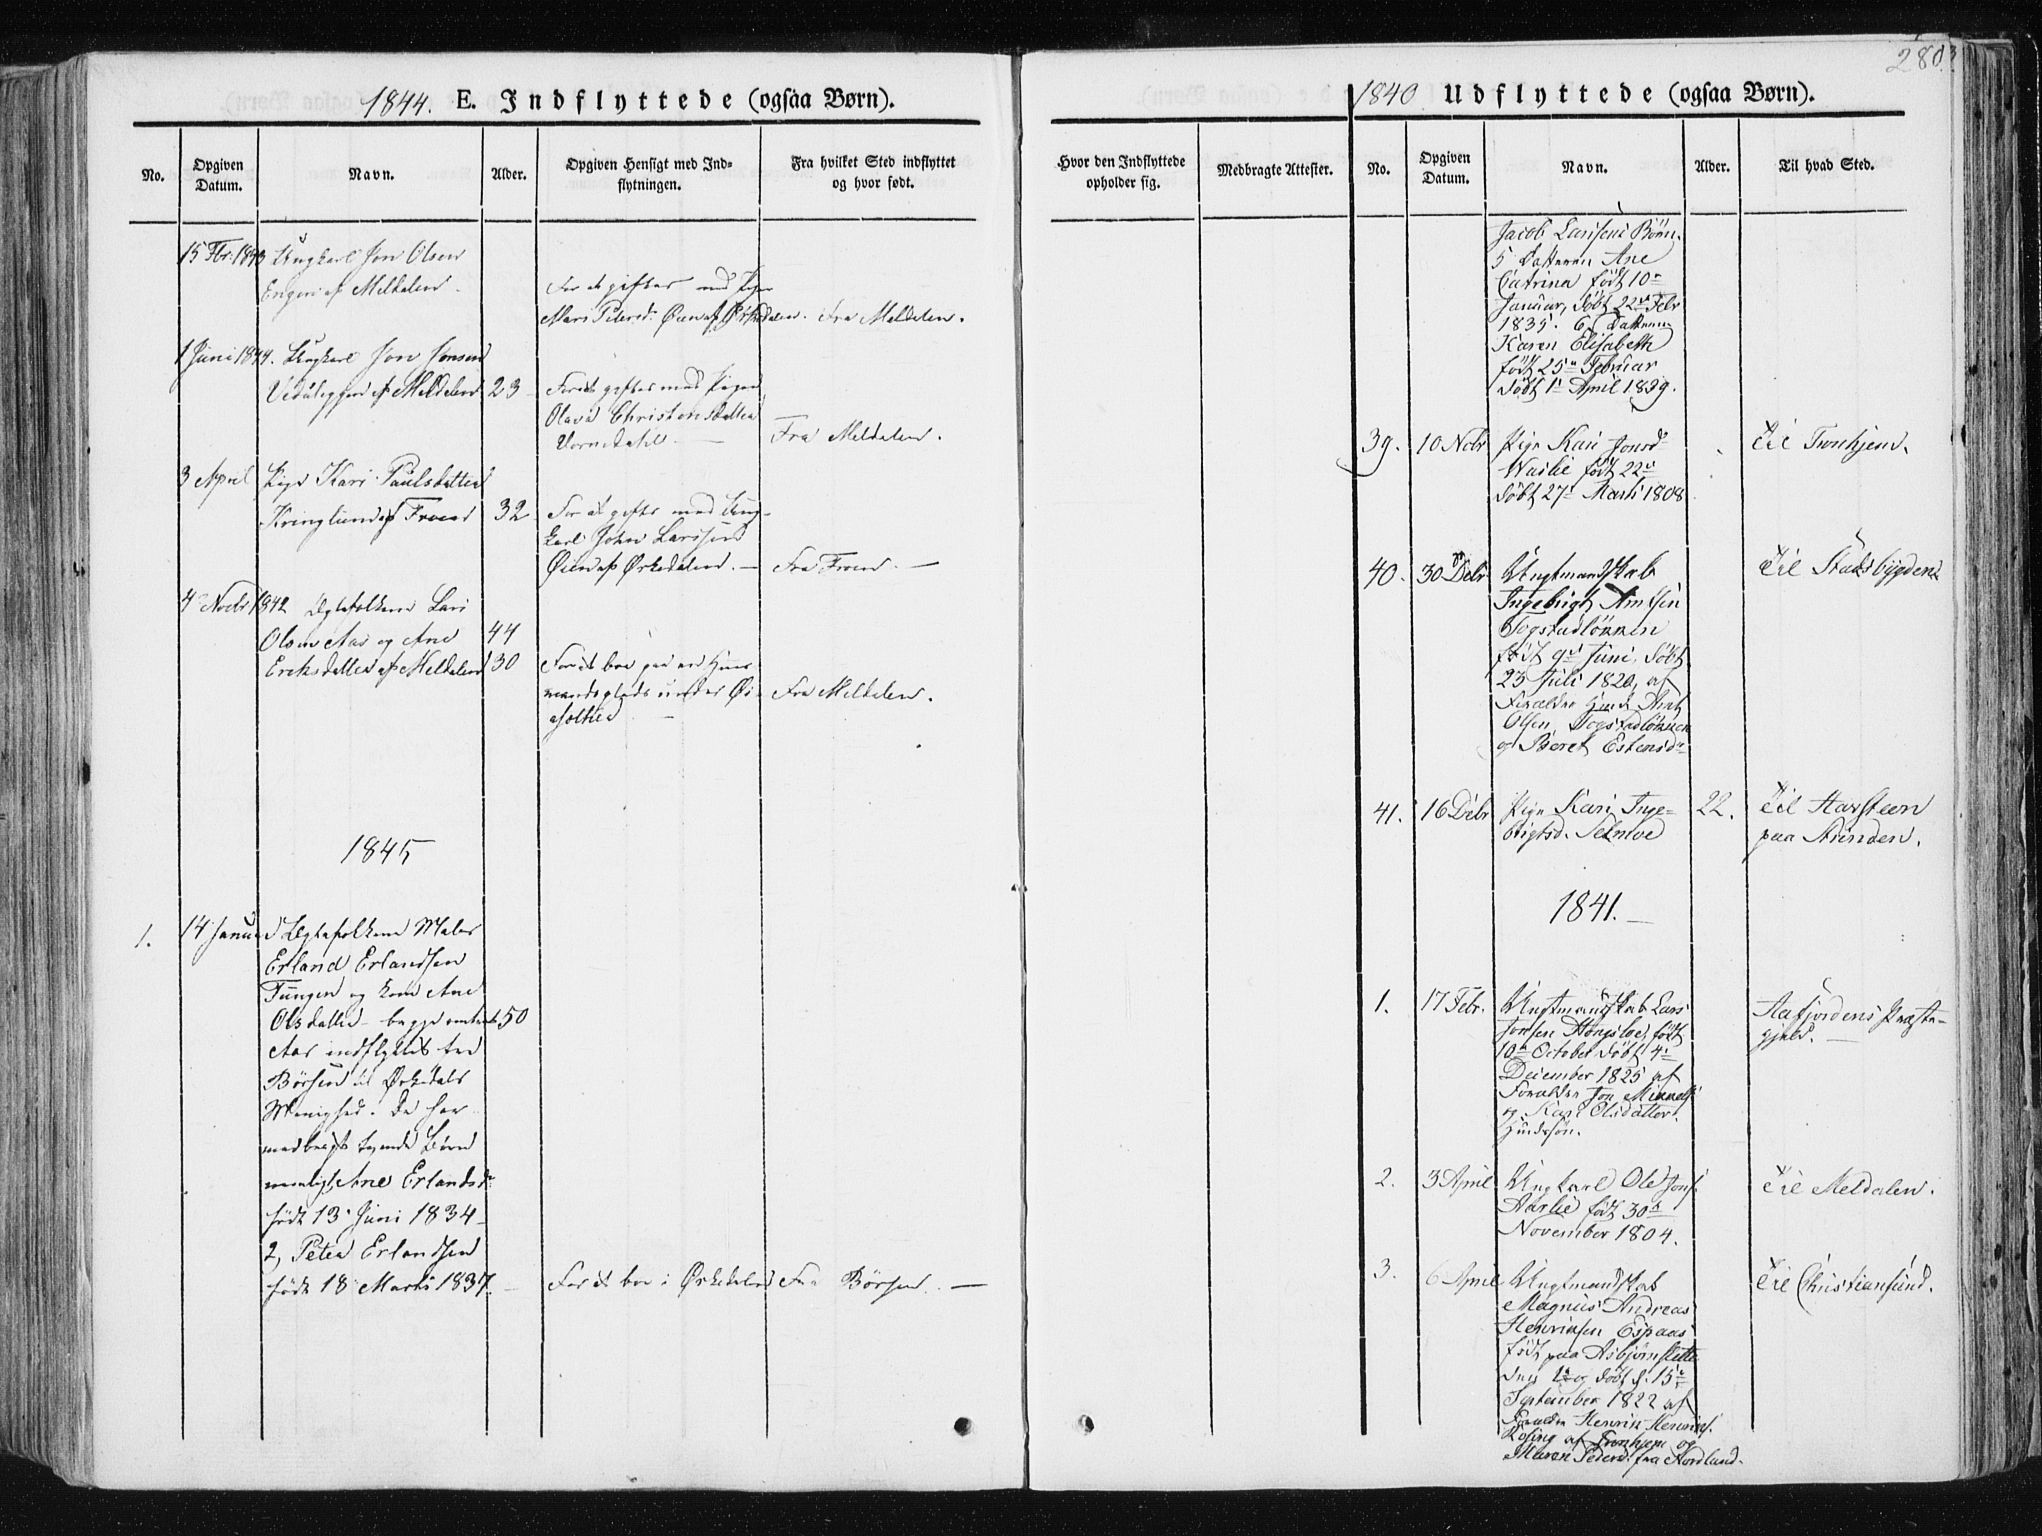 280
1844. E. Indflyttede (ogsaa Børn).
No.
Opgiven Datum.
Navn.
Alder.
Opgiven Hensigt med Ind-
flytningen.
Fra hvilket Sted indflyttet
og hvor født.
15 Fbr. 1843 Ungkarl Jon Olsen
Engen af Meldalen.
For at giftes med Pigen
Mari Petersd. Øien af Ørkedalen. Fra Meldalen.
1 Juni 1844. Ungkarl Jon Jonsen
af Meldalen 23
For at giftes med Pigen
Olava Christensdatter
Fra Meldalen.
3 April Pige Kari Paulsdatter
32 For at giftes med Ung-
karl John Larsen
Øien af Ørkedalen. — Fra —
4 Novbr 1842 Ægtefolkene Lars
Olsen Aas og Ane 44
Eriksdatter af Meldalen 30
For at boe paa en Huus-
mandsplads under
Fra Meldalen.
1845
1. 14 Januar Ægtefolkene Maler
Erland Erlandsen
Tungen og Kone Ane
Olsdatter — begge omtrent 50
Aar indflyttet fra
Børsen til Ørkedals
Menighed. De har
medbragt tvende Børn
nemlig Ane Erlandsd.
født 13 Juni 1834 —
2, Peter Erlandsen
født 18 Marts 1837.
For at boe i Ørkedalen Fra Børsen. —
1840 Udflyttede (ogsaa Børn).
Hvor den Indflyttede
opholder sig.
Medbragte Attester.
No.
Opgiven Datum.
Navn.
Alder.
Til hvad Sted.
Jacob Larsens Børn.
5 Datteren Ane
Catrina født 10de
Januar, døbt 22de Febr
1835. 6, Datteren
Karen Elisabeth
født 25de Februar
døbt 1ste April 1839.
39. 10 Nobr Pige Kari Jonsd. Til Tronhjem.
født 22de
døbt 27de Marts 1808
40. 30 Debr Ungtmandskab Til Stadsbygden
Ingebrigt Arntsen
Togstadlønnen
født 9de Juni, døbt
23 Juli 1820, af
Forældre Huusmd Arnt
Olsen Togstadlønnen
og Beret Estensd.
41. 16 Debr Pige Kari Inge- 22. Til
brigtsd. paa Strinden.
1841. —
1. 17 Febr. Ungtmandskab Lars
Jonsen født
10de October døbt 4de
December 1825 af
Forældre Jon
og Kari Olsdatter.
Aafjordens Præste-
gjeld. —
2. 3 April Ungkarl Ole Jons. Til Meldalen.
født 30te
November 1804.
3. 6 April Ungtmandskab Til Christiansund.
Magnus Andreas
Henriksen Espaas
født paa
den og døbt d. 15de
September 1822 af
Forældre Henrik Henriks.
Rosing af Tronhjem og
Maren Pedersd. fra Nordland.